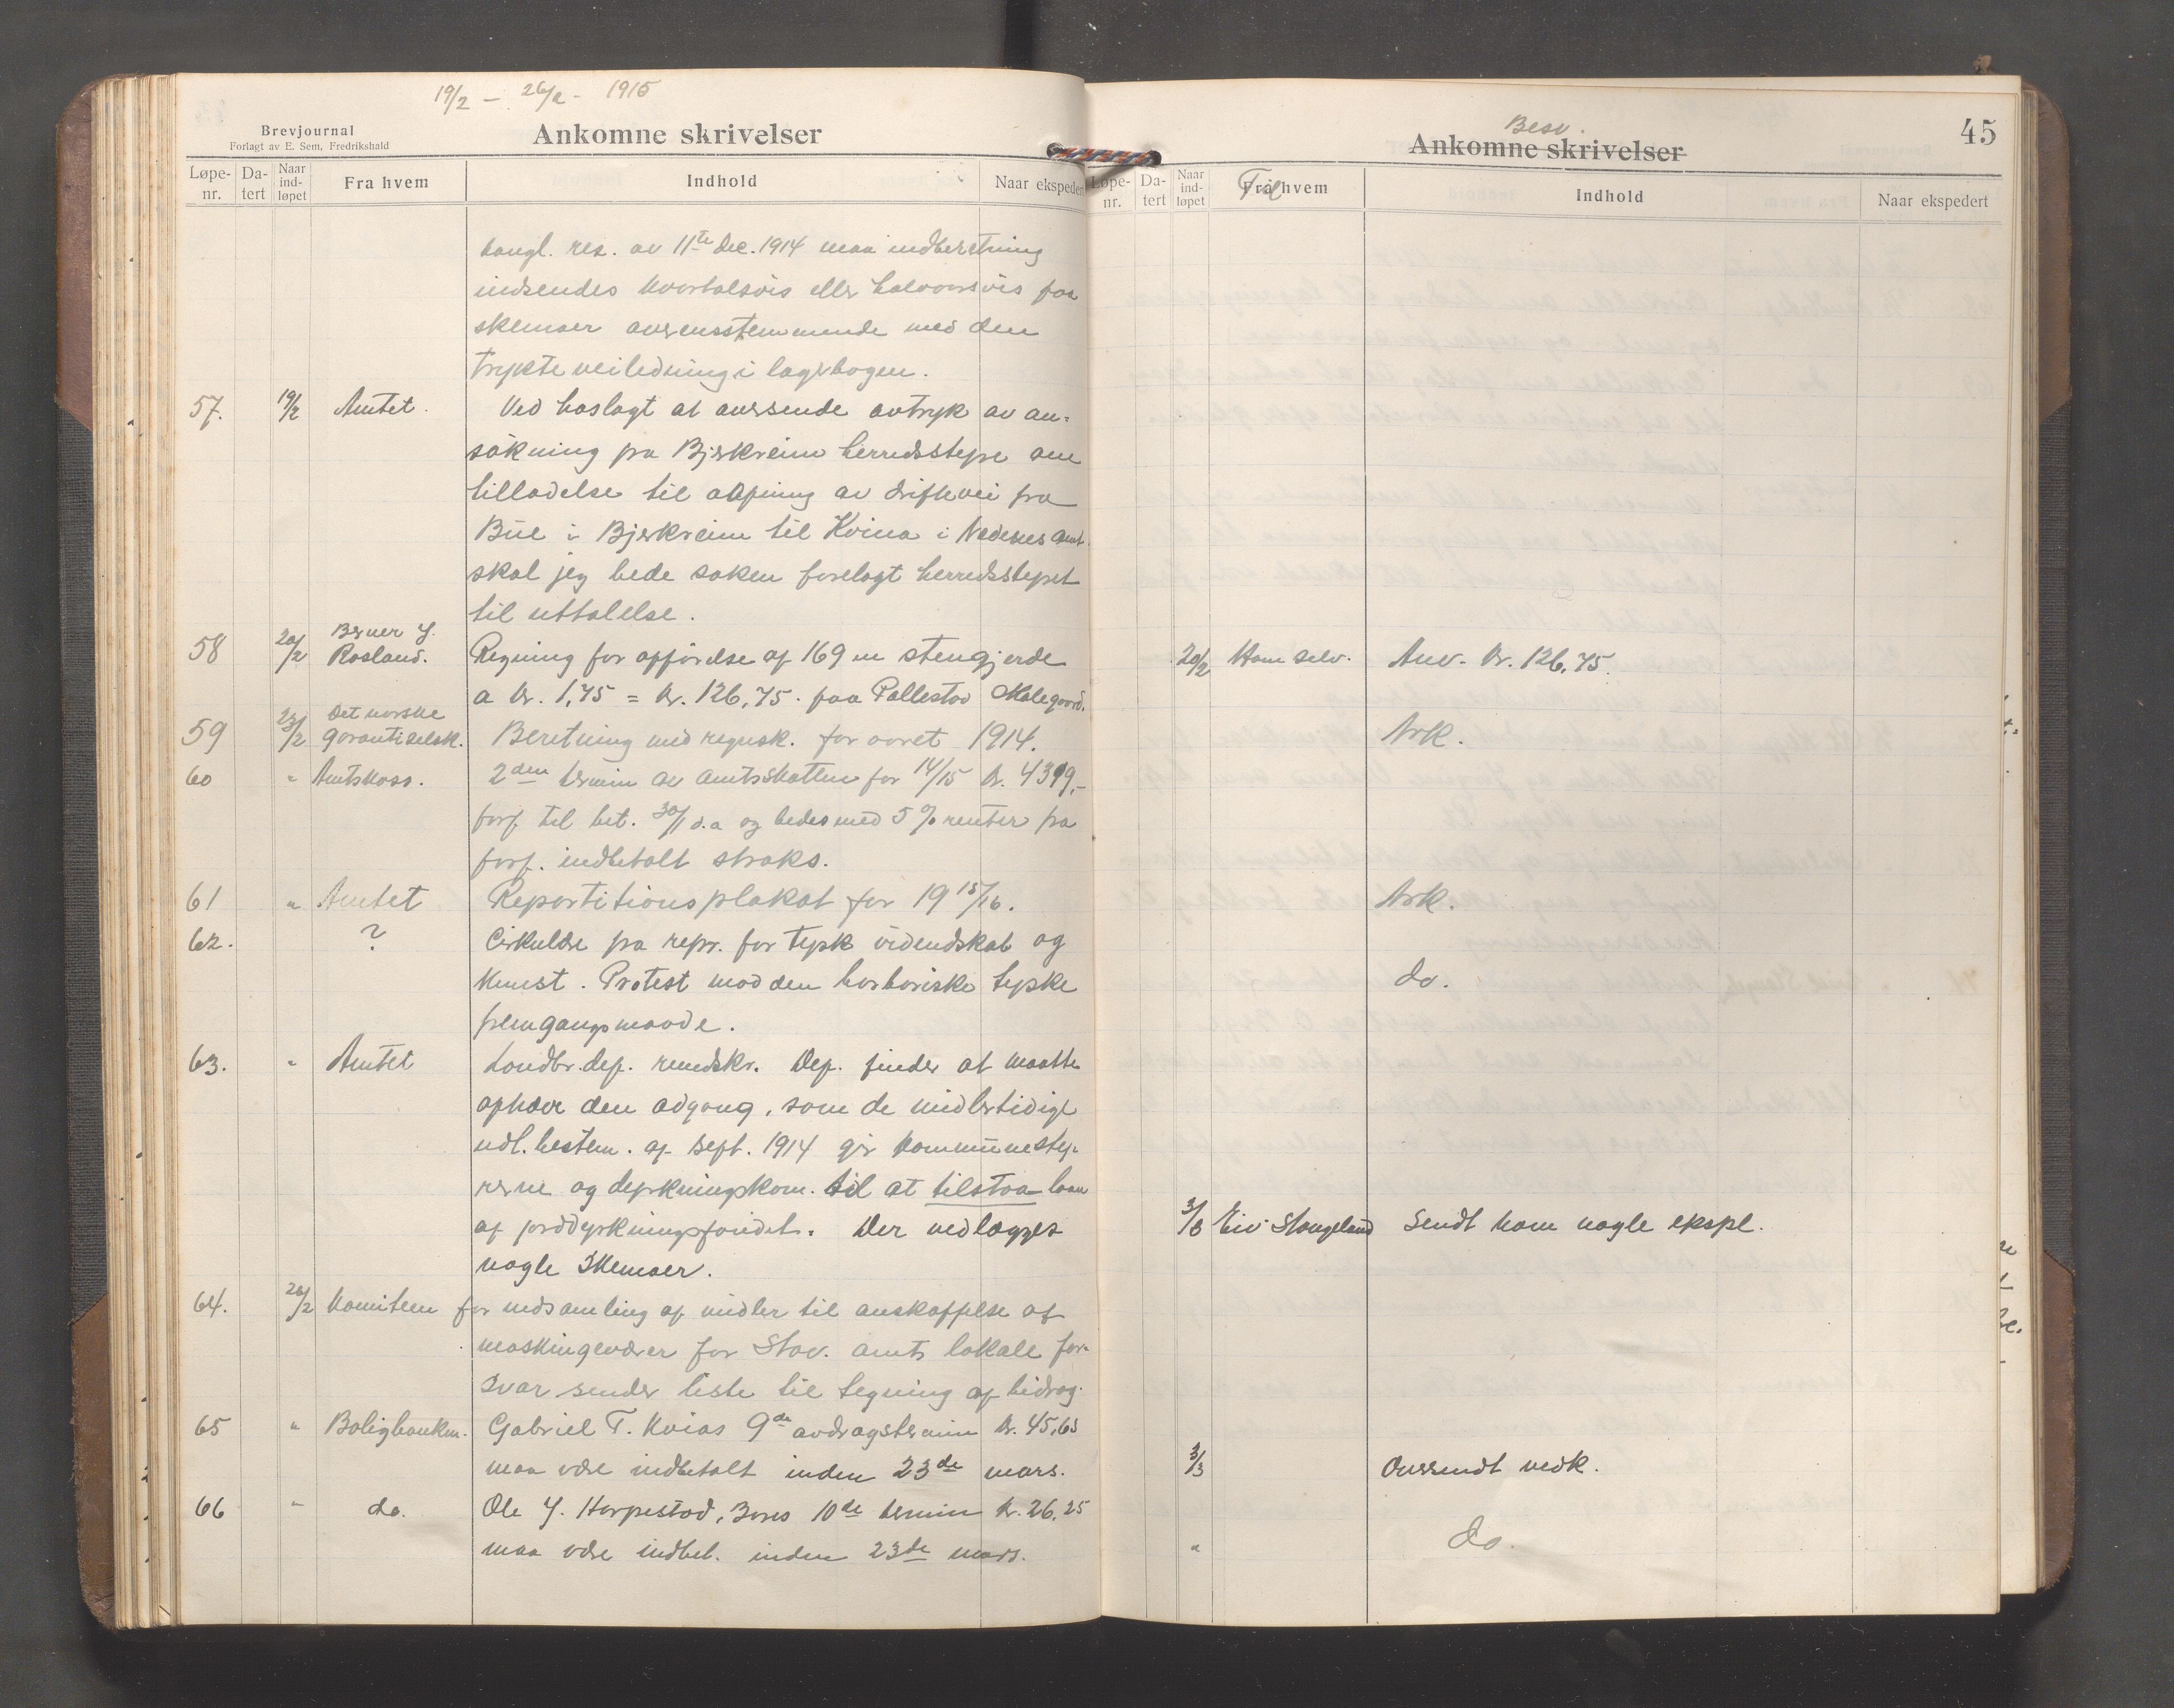 19/2 - 26/2 - 1915
Brevjournal
Forlagt av E. Sem, Fredrikshald
Ankomne skrivelser
Løpe-nr. Da-tert Naar ind-løpet Fra hvem Indhold Naar ekspedert
kongl. res. av 11te dec. 1914 maa indberetning
indsendes kvartalsvis eller halvaarsvis paa
skemaer overensstemmende med den
trykte veiledning i lagerbogen.
57. 19/2 Amtet. Ved hoslagt at oversende avtryk av an-
søkning fra Bjerkreim herredsstyre om
tilladelse til aapning av driftevei fra
Bue i Bjerkreim til Kvina i Nedenes amt.
skal jeg bede saken forelagt herredsstyret
til uttalelse.
58 20/2 Berner J. Rosland. Regning for opførelse af 169 m stengjerde
a kr. 1,75 = kr. 126,75. paa Pallestad Skolegaard.
59 23/2 Det norske garantiselsk. Beretning med regnsk. for aaret 1914.
60 " Amtskass. 2den termin av amtsskatten for 14/15 kr. 4399,-
forf. til bet. 30/1 d.a og bedes med 5 % renter fra
forf. indbetalt straks.
61 " Amtet Repartitionsplakat for 19 15/16.
62. ? Cirkulære fra repr. for tysk videndskab og
kunst. Protest mod den barbariske tyske
fremgangsmaade.
63. " Amtet Landbr. dep. rundskr. Dep. finder at maatte
ophæve den adgang, som de midlertidige
udl. bestem. af sept. 1914 gir kommunesty-
rerne og dyrkningskom. til at tilstaa laan
af jorddyrkningsfondet. Der vedlægges
nogle Skemaer.
64. 26/2 Komiteen for indsamling af midler til anskaffelse af
maskingeværer for Stav. amts lokale for-
svar sender liste til tegning af bidrag.
65 " Boligbanken. Gabriel T. Kvias 9de avdragstermin kr. 45,65
maa være indbetalt inden 23de mars.
66 " do. Ole J. Harpestad, Bores 10de termin kr. 26,25
maa være indbet. inden 23de mars.
45
Besv.
Ankomne skrivelser
Løpe-nr. Da-tert Naar ind-løpet Fra hvem Til Indhold Naar ekspedert
20/2 Ham selv. Anv. kr. 126,75.
Ark.
Ark.
do.
3/3 Eiv Stangeland Sendt ham nogle ekspl.
3/3 Oversendt vedk.
" do.